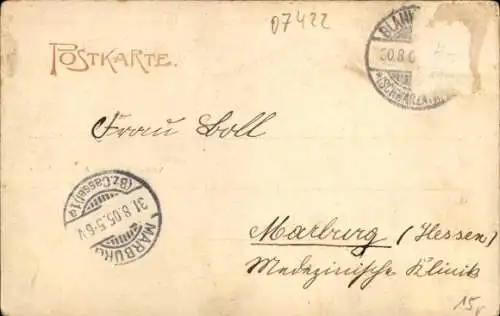 07422
POSTKARTE.
30.8.0
(SCHWARZA
Frau Boll
MARBURG
(Bz.Cassel) 1a
31.8.05.5-6N
Marburg (Hessen)
Medezinische Klinik
15,